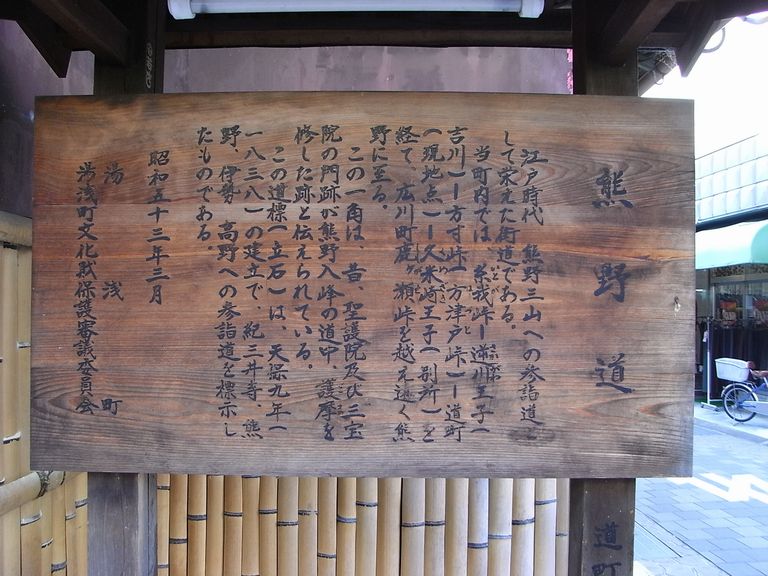 熊野道
江戸時代　熊野三山への参詣道と
して栄えた街道である。
当町内では、糸我峠―逆川王子（
吉川）―方寸峠（方津戸峠）―道町
（現地点）―久米崎王子（別所）を
経て、広川町鹿ヶ瀬峠を越え遠く熊
野に至る。
この一角は、昔、聖護院及び三宝
院の門跡が熊野入峰の道中、護摩を
修した跡と伝えられている。
この道標（立石）は、天保九年（
一八三八）の建立で、紀三井寺、熊
野、伊勢、高野への参詣道を標示し
たものである
昭和五十三年三月
湯浅町
湯浅町文化財保護審議委員会
道町